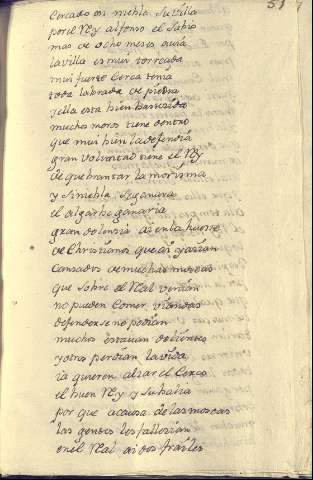 51 7
Cercado en niebla su villa
por el Rey alfonso el Sabio
mas de ocho meses auia
la villa es mui torreada
mui fuerte Cerca tenia
toda labrada de piedra
y ella esta bien bastecida
muchos moros tiene dentro
que mui bien la defendia
gran voluntad tiene el Rey
de quebrantar la morisma
y si niebla se ganara
el algarbe ganaria
gran dolencia ai en la hueste
de Christianos que ai yacian
cansados de muchas moscas
que sobre el Real venian
no pueden Comer viandas
defenderse no podian
muchos estauan dolientes
y otros perdian la vida
ia quieren alzar el Cerco
el buen Rey y su balia
por que a causa de las moscas
las gentes les fallecian
en el Real ai dos frailes